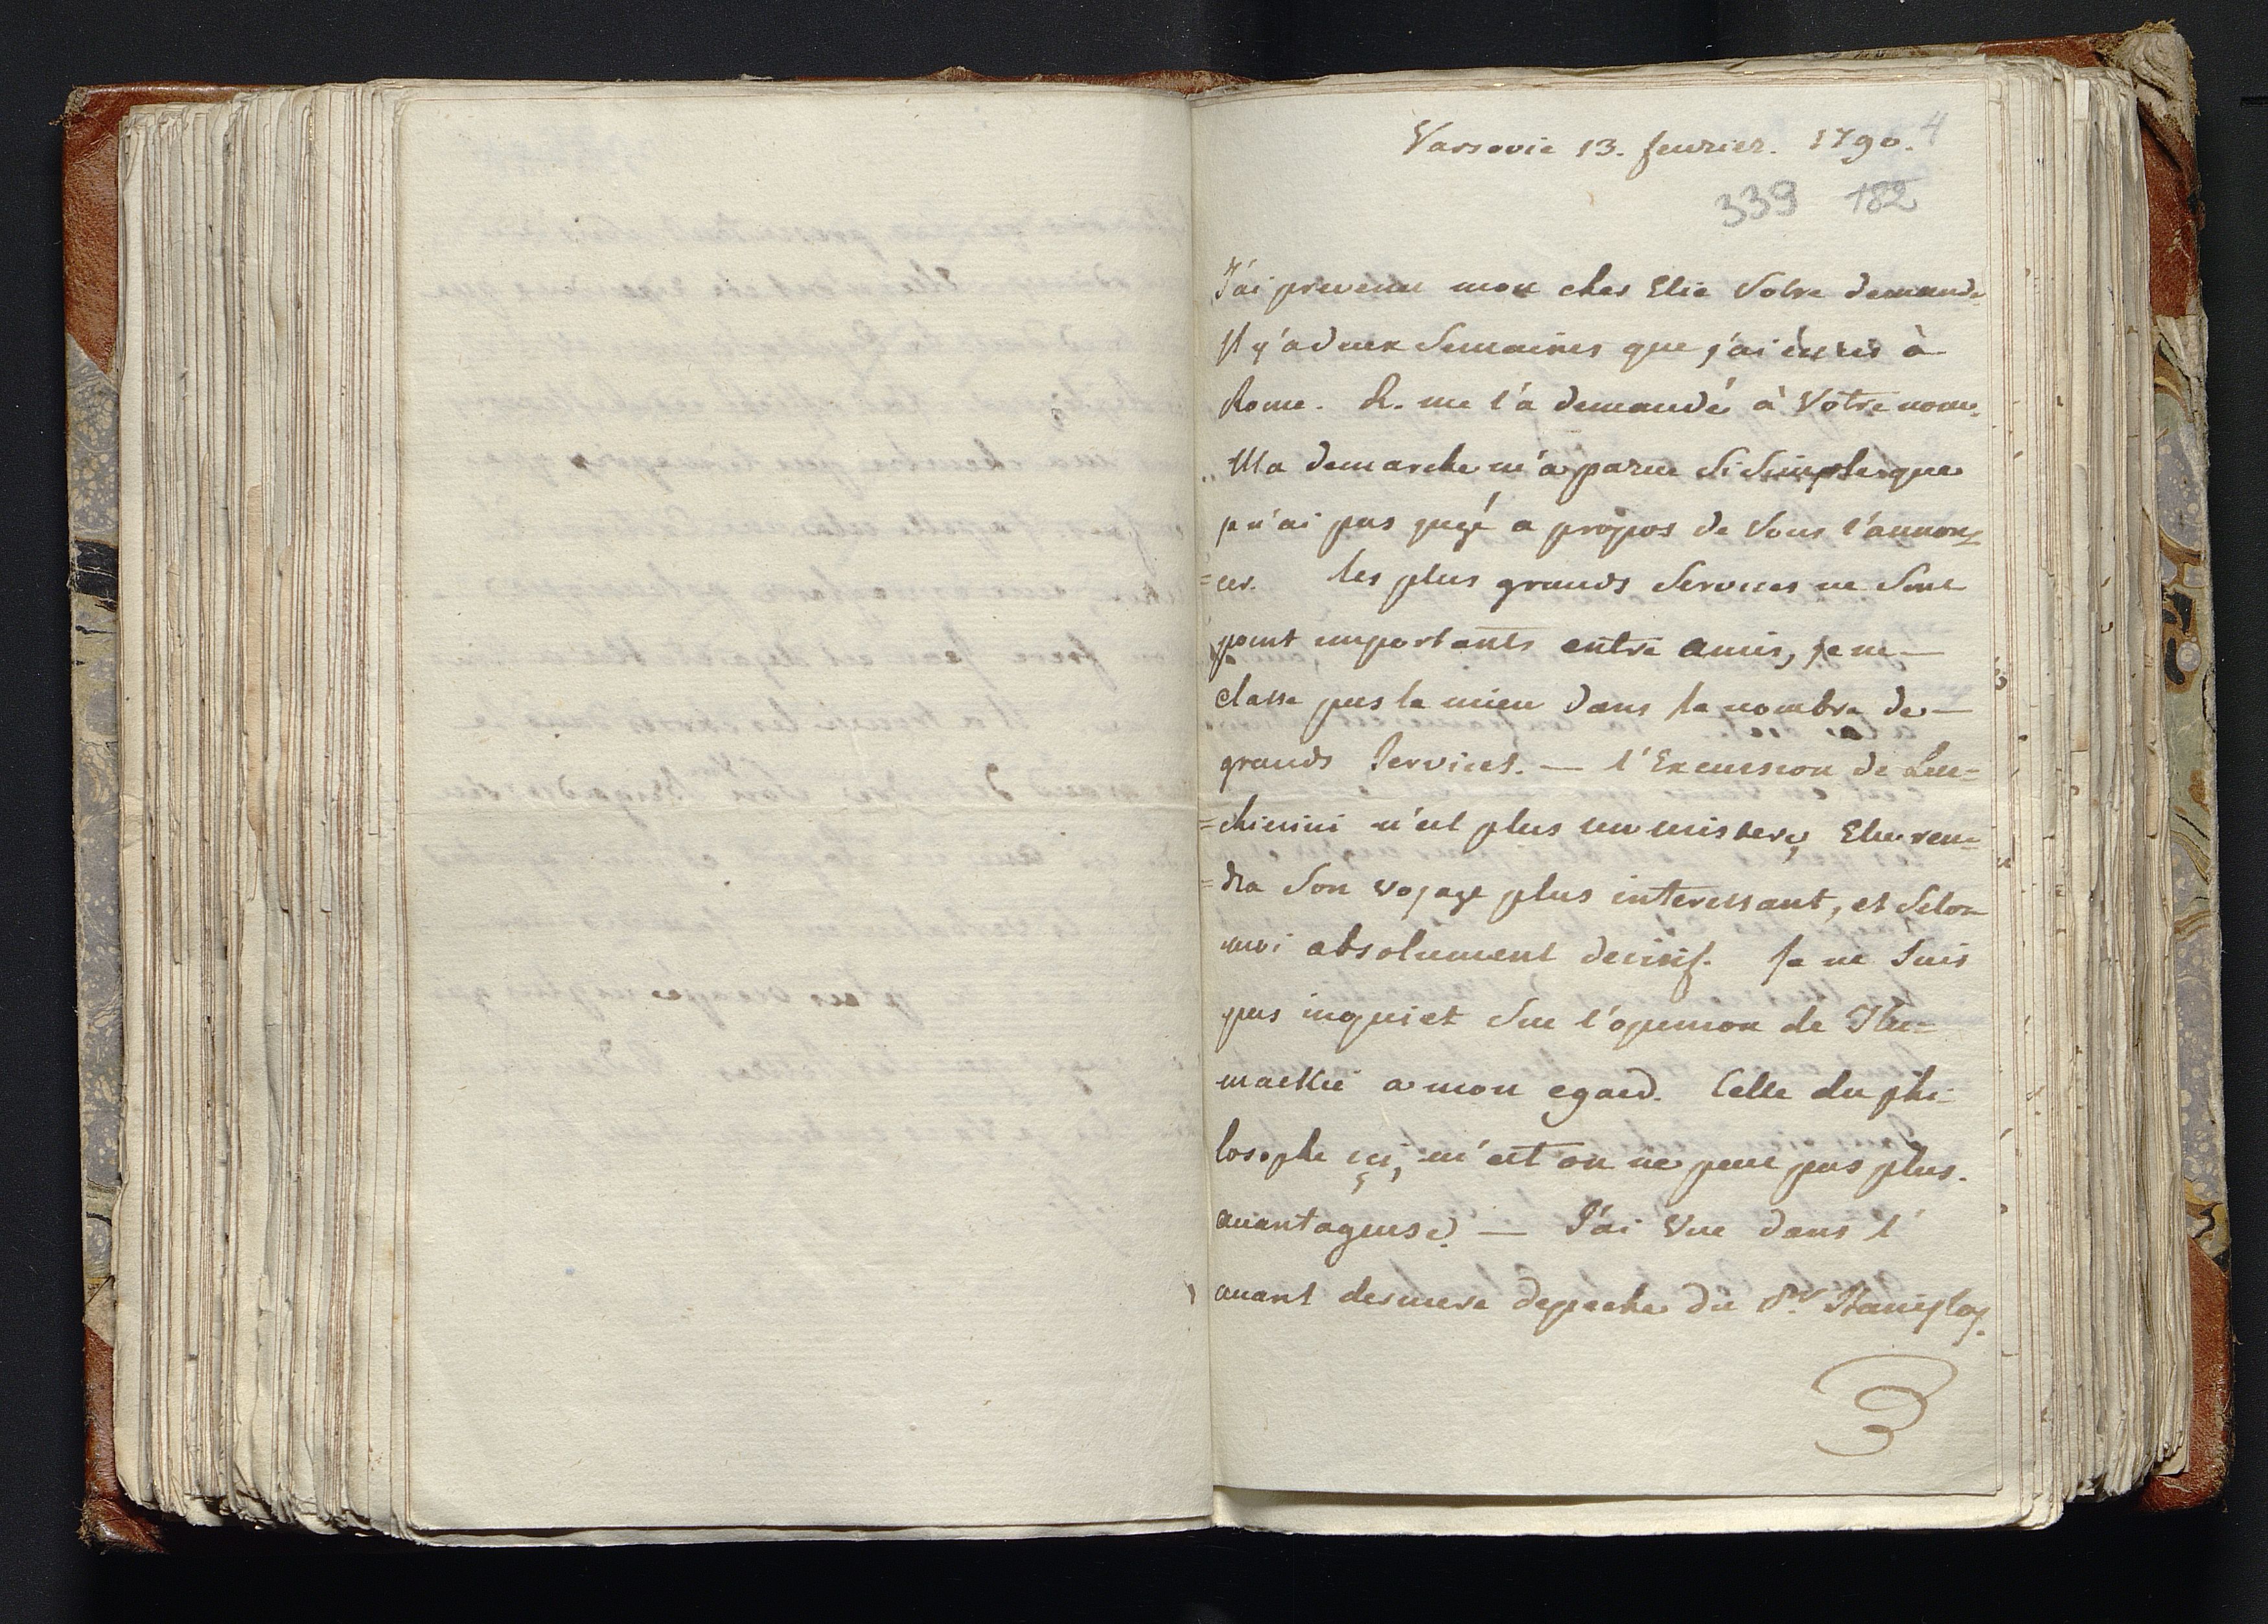 Varsovie 13. fevrier. 1790. 4
339 182
J'ai prevenu mon cher Elie Votre demande
Il y'a deux Semaines que j'ai écris à
Rome. R. me l'a demandé à Votre nom.
Ma demarche m'a parue Si Simple que
je n'ai pas jugé a propos de Vous l'annon-
=cer. les plus grands Services ne Sont
point importants entre amis, je ne
classe pas le mien dans le nombre de
grands Services. — l'Excursion de Luc-
=chesini n'est plus un mistere, Elle ren-
=dra Son voyage plus interessant, et Selon
moi absolument decisif. Je ne Suis
pas inquiet Sur l'opinion de
a mon egard. Celle du phi-
losophe ici, m'est on ne peut pas plus
avantageuse. — J'ai Vue dans l'
avant derniere depeche du Pr Stanislas